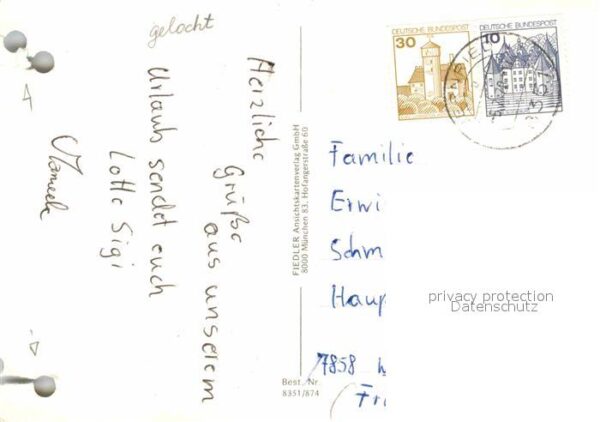 gelocht
Herzliche
Grüße
aus unserem
Urlaub sendet euch
Lotte Sigi
FIEDLER Ansichtskartenverlag GmbH
8000 München 83, Hofangerstraße 60
DEUTSCHE BUNDESPOST
30
DEUTSCHE BUNDESPOST
10
Familie
Erwi
Schm
Haup
7858
privacy protection
Datenschutz
Best. Nr.
8351/874